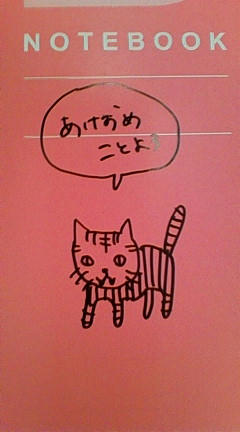 NOTEBOOK
あけおめ
ことよろ